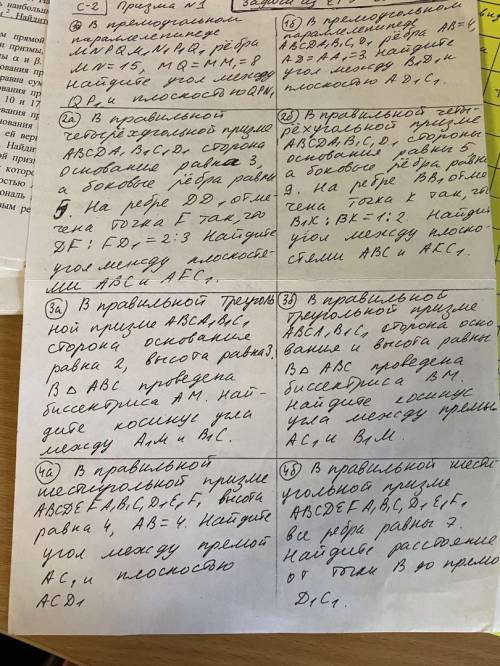 С-2 Призма №1
Задачи из ЕГЭ
1а В прямоугольном
параллелепипеде
MNPQM1N1P1Q1 рёбра
MN=15, MQ=MM1=8
Найдите угол между
QP1 и плоскостью QPN1
1б В прямоугольном
параллелепипеде
ABCDA1B1C1D1 рёбра AB=4,
AD=AA1=3 Найдите
угол между B1D1 и
плоскостью AD1C1.
2а В правильной
четырёхугольной призме
ABCDA1B1C1D1 сторона
основания равна 3,
а боковые рёбра равны
5. На ребре DD1 отме-
чена точка F так, что
DF:FD1=2:3 Найдите
угол между плоскостя-
ми ABC и AFC1.
2б В правильной четы-
рёхугольной призме
ABCDA1B1C1D1 стороны
основания равны 5
а боковые рёбра равны
9. На ребре BB1 отме-
чена точка K так, что
B1K:BK=1:2. Найдит
угол между плоско-
стями ABC и AKC1.
3а В правильной треуголь
ной призме ABCA1B1C1
сторона основания
равна 2, высота равна 3.
В △ ABC проведена
биссектриса AM. Най-
дите косинус угла
между A1M и B1C.
3б В правильной
треугольной призме
ABCA1B1C1 сторона осно-
вания и высота равны
В △ ABC проведена
биссектриса BM.
Найдите косинус
угла между прямы
AC1 и B1M.
4а В правильной
шестиугольной призме
ABCDEFA1B1C1D1E1F1 высота
равна 4, AB=4. Найдите
угол между прямой
AC1 и плоскостью
ACD1
4б В правильной шести
угольной призме
ABCDEFA1B1C1D1E1F1
все ребра равны 7.
Найдите расстояние
от точки B до прямо
D1C1.